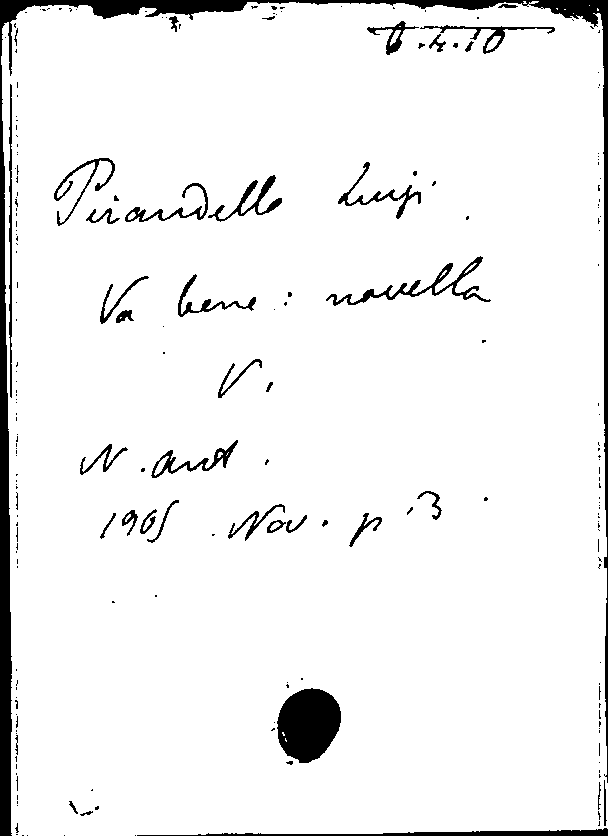 6.4.10
Pirandello Luigi
Va bene: novella
V.
N. ant.
1905 Nov. p. 3